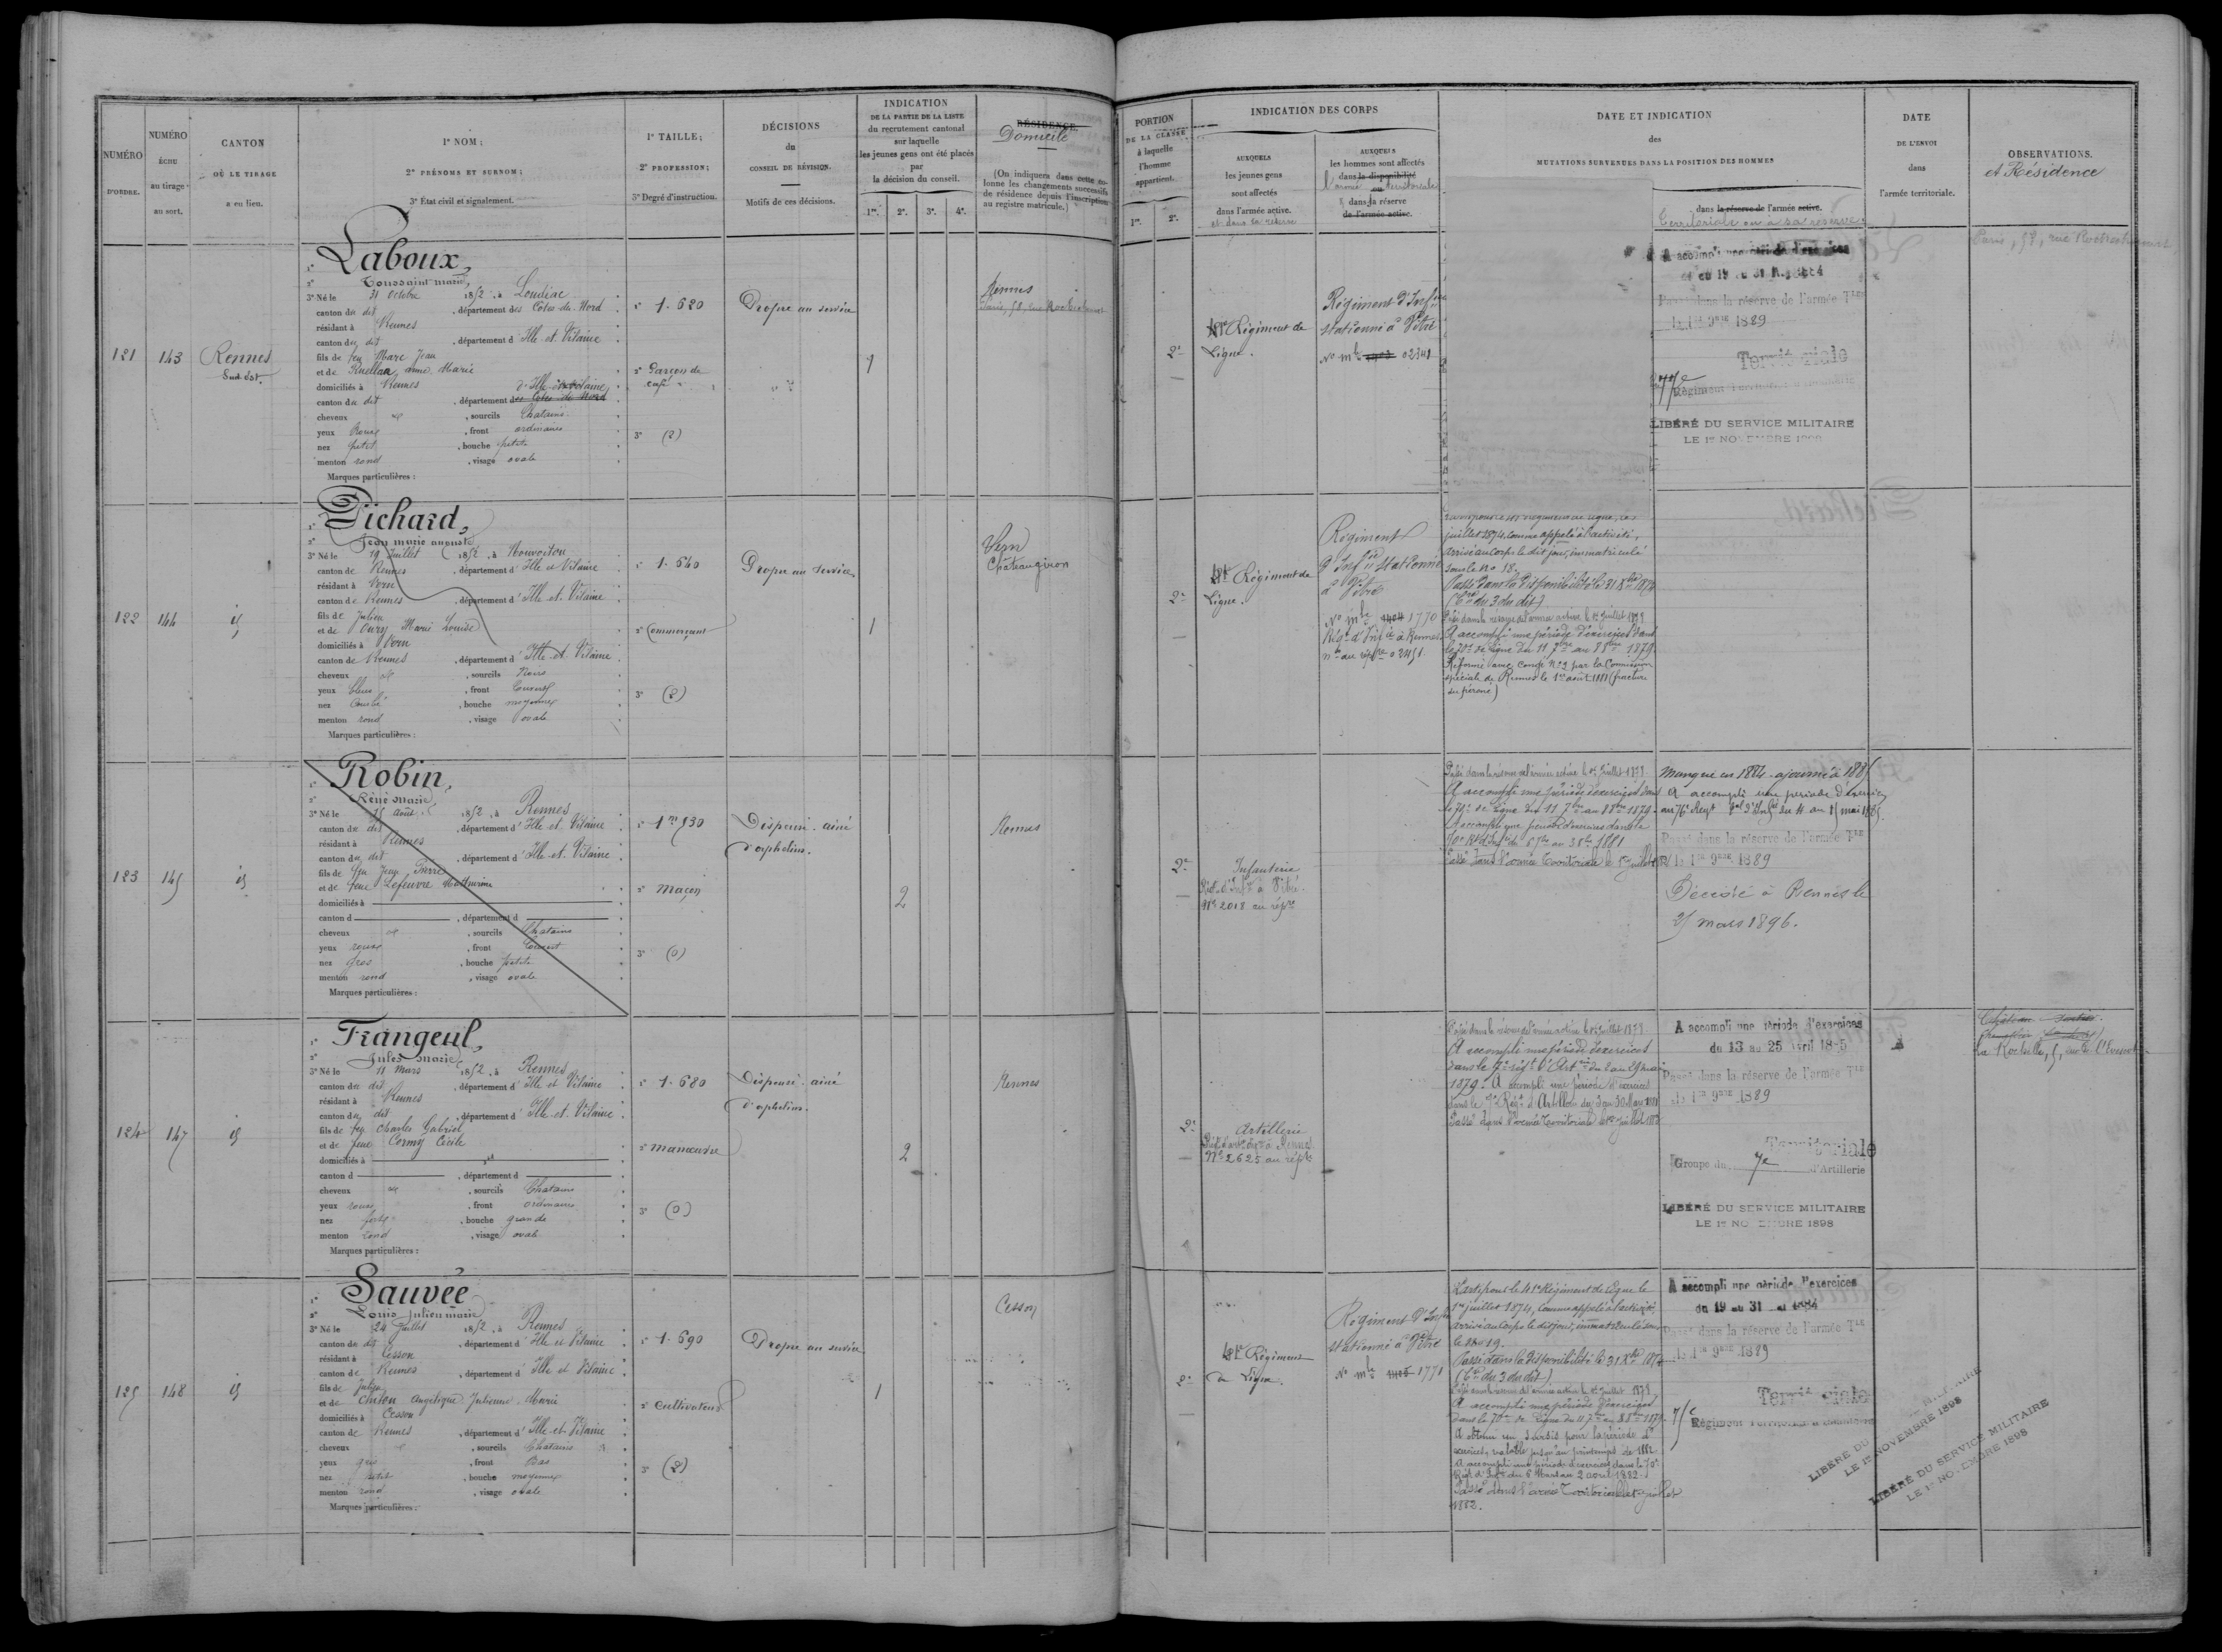 NUMÉRO
D'ORDRE.
NUMÉRO
ÉCHU
au tirage
au sort.
CANTON
OÙ LE TIRAGE
a eu lieu.
1° NOM ;
2° PRÉNOMS ET SURNOM ;
3° État civil et signalement.
1° TAILLE ;
2° PROFESSION ;
3° Degré d'instruction.
DÉCISIONS
du
CONSEIL DE RÉVISION.
Motifs de ces décisions.
INDICATION
DE LA PARTIE DE LA LISTE
du recrutement cantonal
sur laquelle
les jeunes gens ont été placés
par
la décision du conseil.
1re. 2e. 3e. 4e.
RÉSIDENCE.
Domicile
(On indiquera dans cette co-
lonne les changements successifs
de résidence depuis l'inscription
au registre matricule.)
PORTION
DE LA CLASSE
à laquelle
l'homme
appartient.
1re. 2e.
INDICATION DES CORPS
AUXQUELS
les jeunes gens
sont affectés
dans l'armée active.
et dans la réserve
AUXQUELS
les hommes sont affectés
dans la disponibilité
ou
l'armée territoriale
dans la réserve
de l'armée active.
DATE ET INDICATION
des
MUTATIONS SURVENUES DANS LA POSITION DES HOMMES
dans la réserve de l'armée active.
territoriale ou à sa réserve
DATE
DE L'ENVOI
dans
l'armée territoriale.
OBSERVATIONS.
et Résidence
121 143 Rennes
Sud-Est.
1° Laboux,
2° Toussaint marie,
3° Né le 31 Octobre 1852, à Loudéac
canton du dit, département des Côtes-du-Nord
résidant à Rennes
canton du dit, département d'Ille-et-Vilaine
fils de feu Marc Jean
et de anne Marie
domiciliés à Rennes d'Ille-et-Vilaine
canton du dit, département des Côtes du Nord
cheveux , sourcils Chatains
yeux Roux, front ordinaire
nez petit, bouche petite
menton rond, visage ovale
Marques particulières :
1° 1.620
2° Garçon de
café
3° (2)
Propre au service
1
Rennes
2e
Régiment de
Ligne.
Régiment d'Infie
stationné à Vitré
No mle 02341
A accompli une période d'exercices
du 19 au 31 1884
Passé dans la réserve de l'armée Tle
le 1er 9bre 1889
Territoriale
Régiment Territorial d'Infanterie
LIBÉRÉ DU SERVICE MILITAIRE
LE 1er NOVEMBRE 1898
122 144 id
1° Pichard,
2° Jean marie auguste
3° Né le 19 Juillet 1852, à Nouvoitou
canton de Rennes, département d'Ille et Vilaine
résidant à Vern
canton de Rennes, département d'Ille-et-Vilaine
fils de Julien
et de Oury Marie Louise
domiciliés à Vern
canton de Rennes, département d'Ille-et-Vilaine
cheveux , sourcils Noirs
yeux bleus, front Couvert
nez Courbé, bouche moyenne
menton rond, visage ovale
Marques particulières :
1° 1.640
2° Commerçant
3° (2)
Propre au Service
1
Vern
Châteaugiron
2e
Régiment de
Ligne.
Régiment
d'Infie stationné
à Vitré
No mle 1404 1770
Régt d'Infie à Rennes
juillet 1874, comme appelé à l'activité,
arrivé au corps le dit jour, immatriculé
sous le No 18.
Passé dans la disponibilité le 31 Xbre 1874
(Cre du 3 du dit)
Passé dans la réserve de l'armée active le 1er Juillet 1879
A accompli une période d'exercices dans
le 70e de Ligne du 11 7bre au 8 8bre 1879.
Réformé avec Congé No 2 par la Commission
spéciale de Rennes le 1er août 1881 (fracture
du péroné)
123 145 id
1° Robin,
2° René marie,
3° Né le 15 août 1852, à Rennes
canton du dit, département d'Ille et Vilaine
résidant à Rennes
canton du dit, département d'Ille-et-Vilaine
fils de feu Jean Pierre
et de feue Lefeuvre Mathurine
domiciliés à
canton d , département d
cheveux , sourcils Chatains
yeux roux, front Couvert
nez gros, bouche petite
menton rond, visage ovale
Marques particulières :
1° 1m 530
2° Maçon
3° (0)
Dispensé. ainé
d'orphelins.
2
Rennes
2e
Infanterie
Régt d'Infie à Vitré
No 2018 au répre
Passé dans la réserve de l'armée active le 1er Juillet 1879
A accompli une période d'exercices dans
le 70e de Ligne du 11 7bre au 8 8bre 1879.
Passé dans l'armée Territoriale le 1er juillet
Manque en 1884 - ajourné à 1885
A accompli une période d'exercices
au 76e Régt du 4 au 15 mai 1885.
Passé dans la réserve de l'armée Tle
le 1er 9bre 1889
Décédé à Rennes le
25 mars 1896.
124 147 id
1° Frangeul,
2° Jules marie,
3° Né le 11 mars 1852, à Rennes
canton du dit, département d'Ille et Vilaine
résidant à Rennes
canton du dit, département d'Ille-et-Vilaine
fils de feu Charles Gabriel
et de feue Cormy Cécile
domiciliés à
canton d , département d
cheveux , sourcils Chatains
yeux roux, front ordinaire
nez fort, bouche grande
menton rond, visage ovale
Marques particulières :
1° 1.680
2° manœuvre
3° (0)
Dispensé. ainé
d'orphelins.
2
Rennes
2e
Artillerie
No 2625 au répre
Passé dans la réserve de l'armée active le 1er Juillet 1879
A accompli une période d'exercices
1879. A accompli une période d'exercices
Passé dans l'armée Territoriale le 1er Juillet
A accompli une période d'exercices
du 13 au 25 Avril 18-5
Passé dans la réserve de l'armée Tle
le 1er 9bre 1889
Territoriale
Groupe du 7e d'Artillerie
LIBÉRÉ DU SERVICE MILITAIRE
LE 1er NOVEMBRE 1898
La Rochelle, 5,
125 148 id
1° Sauvée
2° Louis Julien marie
3° Né le 24 Juillet 1852, à Rennes
canton du dit, département d'Ille et Vilaine
résidant à Cesson
canton de Rennes, département d'Ille et Vilaine
fils de Julien
et de Chilou Angélique Julienne Marie
domiciliés à Cesson
canton de Rennes, département d'Ille-et-Vilaine
cheveux , sourcils Chatains
yeux gris, front Bas
nez petit, bouche moyenne
menton rond, visage ovale
Marques particulières :
1° 1.690
2° Cultivateur
3° (2)
Propre au service
1
Cesson
2e
Régiment
de Ligne.
Régiment d'Infie
stationné à Vitré
No mle 1405 1771
Parti pour le 41e Régiment de Ligne le
1er juillet 1874, Comme appelé à l'activité,
arrivé au Corps le dit jour, immatriculé sous
le No 19.
Passé dans la disponibilité le 31 Xbre 1874
(Cre du 3 du dit).
Passé dans la réserve de l'armée active le 1er Juillet 1879
A accompli une période d'exercices
dans le 70e de Ligne du 11 7bre au 8 8bre 1879.
A obtenu un sursis pour la période d'
exercices, valable jusqu'au printemps de 1882
A accompli une période d'exercices dans le 70e
Régt d'Infie du 6 Mars au 2 avril 1882.
Passé dans l'armée Territoriale le 1er juillet
1882.
A accompli une période d'exercices
du 19 au 31 mai 1884
Passé dans la réserve de l'armée Tle
le 1er 9bre 1889
Territoriale
75e Régiment Territorial d'Infanterie
LIBÉRÉ DU
LE 1er NOVEMBRE 1898
LIBÉRÉ DU SERVICE MILITAIRE
LE 1er NOVEMBRE 1898